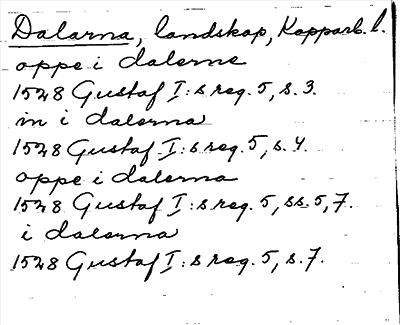 Dalarna, landskap, Kopparb. l.
oppe i dalerne
1528 Gustaf I:s reg. 5, s. 3.
in i dalarna
1528 Gustaf I:s reg. 5, s. 4.
oppe i dalarna
1528 Gustaf I:s reg. 5, ss. 5, 7.
i dalarna
1528 Gustaf I:s reg. 5, s. 7.